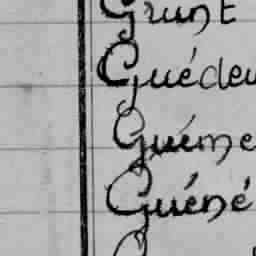 Grunt
Guédeu
Guéme
Guéné